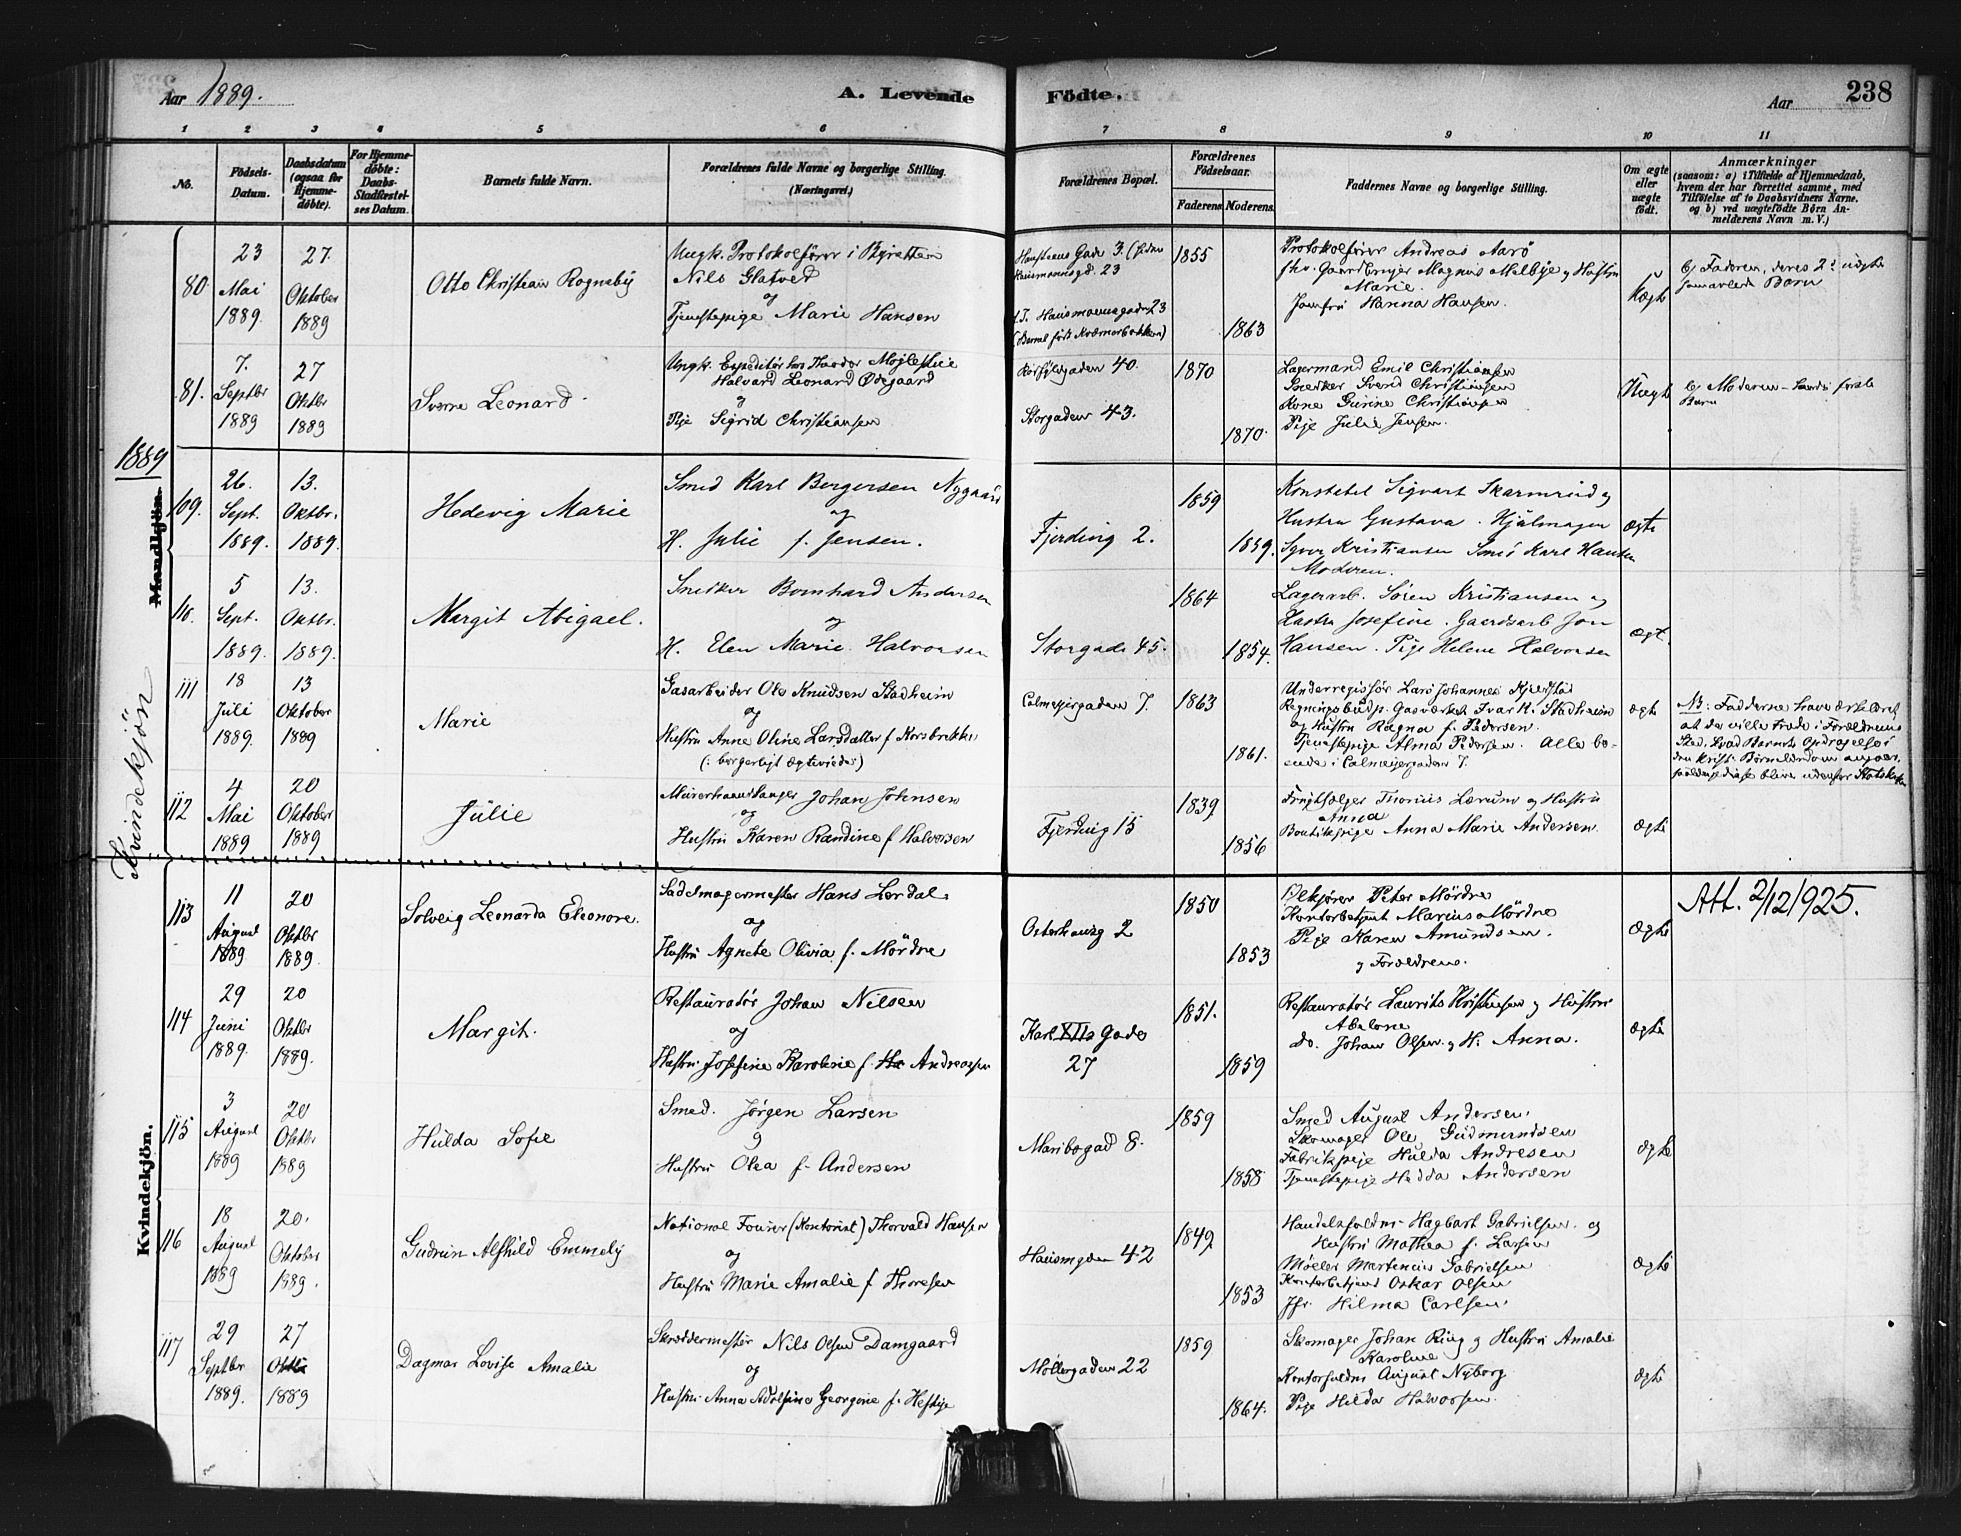 Aar 1889.
A. Levende
Födte.
Aar
238
1 2 3 4 5 6 7 8 9 10 11
No.
Födsels-
Datum.
Daabsdatum
(ogsaa for
Hjemme-
døbte).
For Hjemme-
døbte:
Daabs-
Stadfæstel-
ses Datum.
Barnets fulde Navn.
Forældrenes fulde Navne og borgerlige Stilling.
(Næringsvei.)
Forældrenes Bopæl.
Forældrenes
Fødselsaar.
Faderens
Moderens.
Faddernes Navne og borgerlige Stilling.
Om ægte
eller
uægte
født.
Anmærkninger
(saasom: a) i Tilfælde af Hjemmedaab,
hvem der har forrettet samme, med
Tilföielse af to Daabsvidners Navne.
og b) ved uægtefödte Børn An-
melderens Navn m. V.)
1889
Mandkjön.
Kvindekjøn
Kvindekjön.
80
23
Mai
1889.
27.
Oktober
1889
Otto Christian Rogneby
Ungk. Protokolfører i Byretten
Nils Glatved
og
Tjenestepige Marie Hansen
Hausmannsgd. 23
Hausmannsgaden 23
1855
1863
Protokolfører Andreas Aarö
fhv. Gaardbruger Magnus Melbye og Hustru
Marie.
Jomfru Hanna Hansen.
Uægte
b) Faderen, deres 2det uægte
sammavlede Barn
81.
7.
Septbr
1889
27
Oktbr
1889
Sverre Leonard
Halvard Leonard Ødegaard
og
Pige Sigrid Christiansen
40.
Storgaden 43.
1870
1870.
Lagermand Emil Christiansen
Snedker Sverd Christiansen
Kone Gurine Christiansen
Pige Julie Jensen.
Uægte
b) Moderen – hendes første
Barn
109.
26.
Sept.
1889.
13.
Oktbr.
1889.
Hedevig Marie
Smed Karl Bergersen Nygaard
og
H. Julie f. Jensen.
Fjerding 2.
1859
1859.
Konstabel Sigvart Skarmrud og
Hustru Gustava. Hjulmager
Syver Kristiansen Smed Karl Hansen
Moderen.
ægte
110.
5
Sept.
1889.
13.
Oktbr.
1889.
Margit Abigael.
Snedker Bernhard Andersen
og
H. Elen Marie Halvorsen
Storgade 45.
1864
1854.
Lagerarb. Søren Kristiansen og
Hustru Josefine. Gaardsarb Jon
Hansen. Pige Helene Halvorsen
ægt.
111
18
Juli
1889.
13
Oktober
1889
Marie
Gasarbeider Ole Knudsen Stadheim
og
Hustru Anne Oline Larsdatter f. Korsbrekke
(: borgerligt Ægteviede:)
Calmeyergaden 7.
1863
1861.
Underregissør Lars Johannes Kjerstad
Regningsbudp. Gasverket Ivar K. Stadheim
og Hustru Ragna f. Pedersen.
Tjenestepige Alma Pedersen. Alle bo-
ende i Calmeyergaden 7.
ægte
NB: Fadderne have erklæret
at de ville træde i Forældrenes
Sted, hvad Barnets Opdragelse i
den kristl. Børnelærdom angaar,
saafremt disse blive udenfor Statskirken
112
4
Mai
1889
20
Oktober
1889
Julie
Johan Johnsen
og
Hustru Karen Randine f Halvorsen
Fjerding 15
1839
1856
Thorius Lærum og Hustru
Anna
Boutikspige Anna Marie Andersen.
ægte
113
11
August
1889
20
Oktbr
1889.
Solveig Leonarda Eleonore.
Sadelmagermester Hans Lørdal.
og
Hustru Agnete Olivia f. Mördre
Osterhausg 2
1850
1853
Ølkjører Peter Mördre
Kontorbetjent Marius Mördre
Pige Karen Amundsen.
og Forældrene.
ægte
Att. 2/12 1925.
114
29
Juni
1889.
20
Oktbr
1889.
Margit.
Restauratör Johan Nilsen
og
Hustru Josefine Karoline f. Andreassen
Karl XIIs Gade
27
1851.
1859
Restauratör Laurits Kristensen og Hustru
Abelone
do. Johan Olsen og H. Anna.
ægte
115
3
August
1889
20
Oktbr
1889
Hulda Sofie
Smed. Jørgen Larsen
og
Hustru Olea f. Andersen
Maribogad 8.
1859
1858
Smed August Andersen.
Skomager Ole Gudmundsen
Fabrikpige Hulda Andresen
Tjenestepige Hedda Andersen
ægte
116
18
August
1889
20.
Oktober
1889.
Gudrun Alfhild Emmely
National Fourer (Kontorist) Thorvald Hansen
og
Hustru Marie Amalie f Thoresen
Hausmgden 42
1849
1853
Handelsfuldm. Hagbart Gabrielsen. og
Hustru Mathea f. Larsen
Møller Martenius Gabrielsen
Kontorbetjent Oskar Olsen
Jfr. Hilma Carlsen.
ægte
117
29
Septbr
1889.
27
Oktbr
1889
Dagmar Lovise Amalie
Skræddermester Nils Olsen Damgaard
og
Hustru Anna Adolfine Georgine f. Heftye
Møllergaden 22
1859
1864.
Skomager Johan Ring og Hustru Amalie
Karoline
Kontorfuldm August Nyborg
Pige Hilda Halvorsen.
ægte